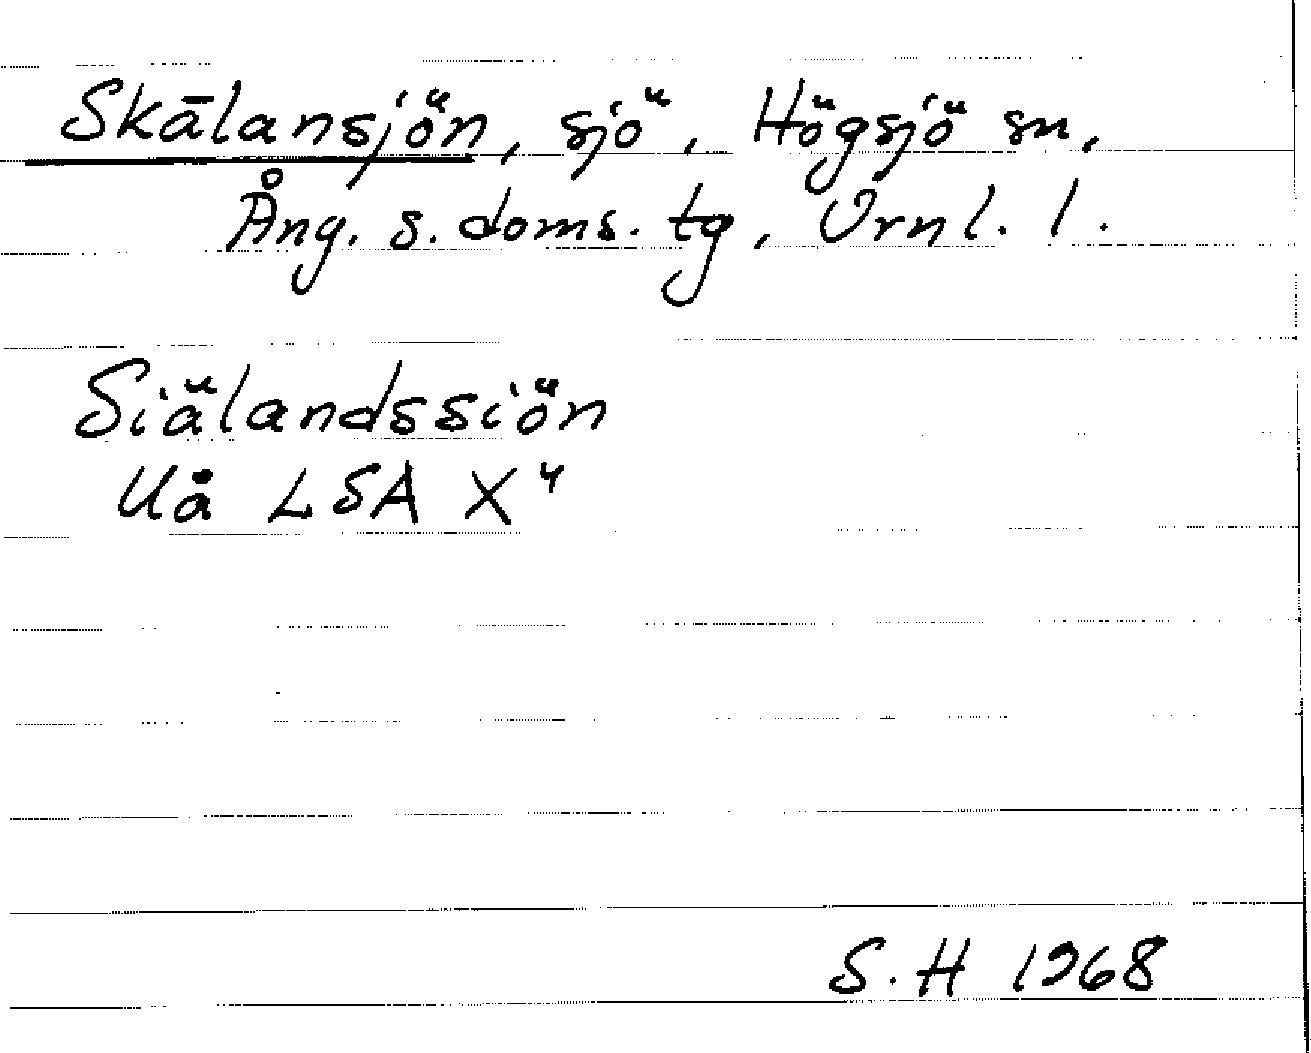 Skālansjön, sjö, Högsjö sn,
Ång. s. doms. tg, Vrnl. l.
Siälandssiön
Uå LSA X4
S. H 1968